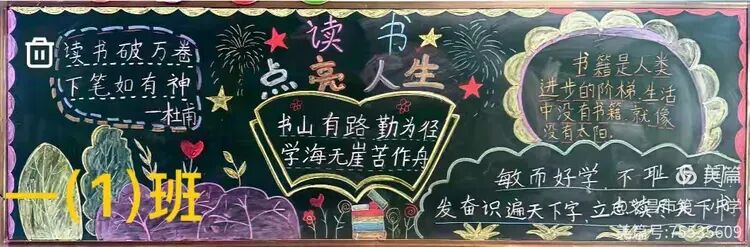 读书破万卷
下笔如有神
—杜甫
读书
点亮人生
书山有路勤为径
学海无崖苦作舟
书籍是人类
进步的阶梯.生活
中没有书籍.就像
没有太阳.
敏而好学,不耻
发奋识遍天下字,立志
一(1)班
美篇
美篇号:75535609